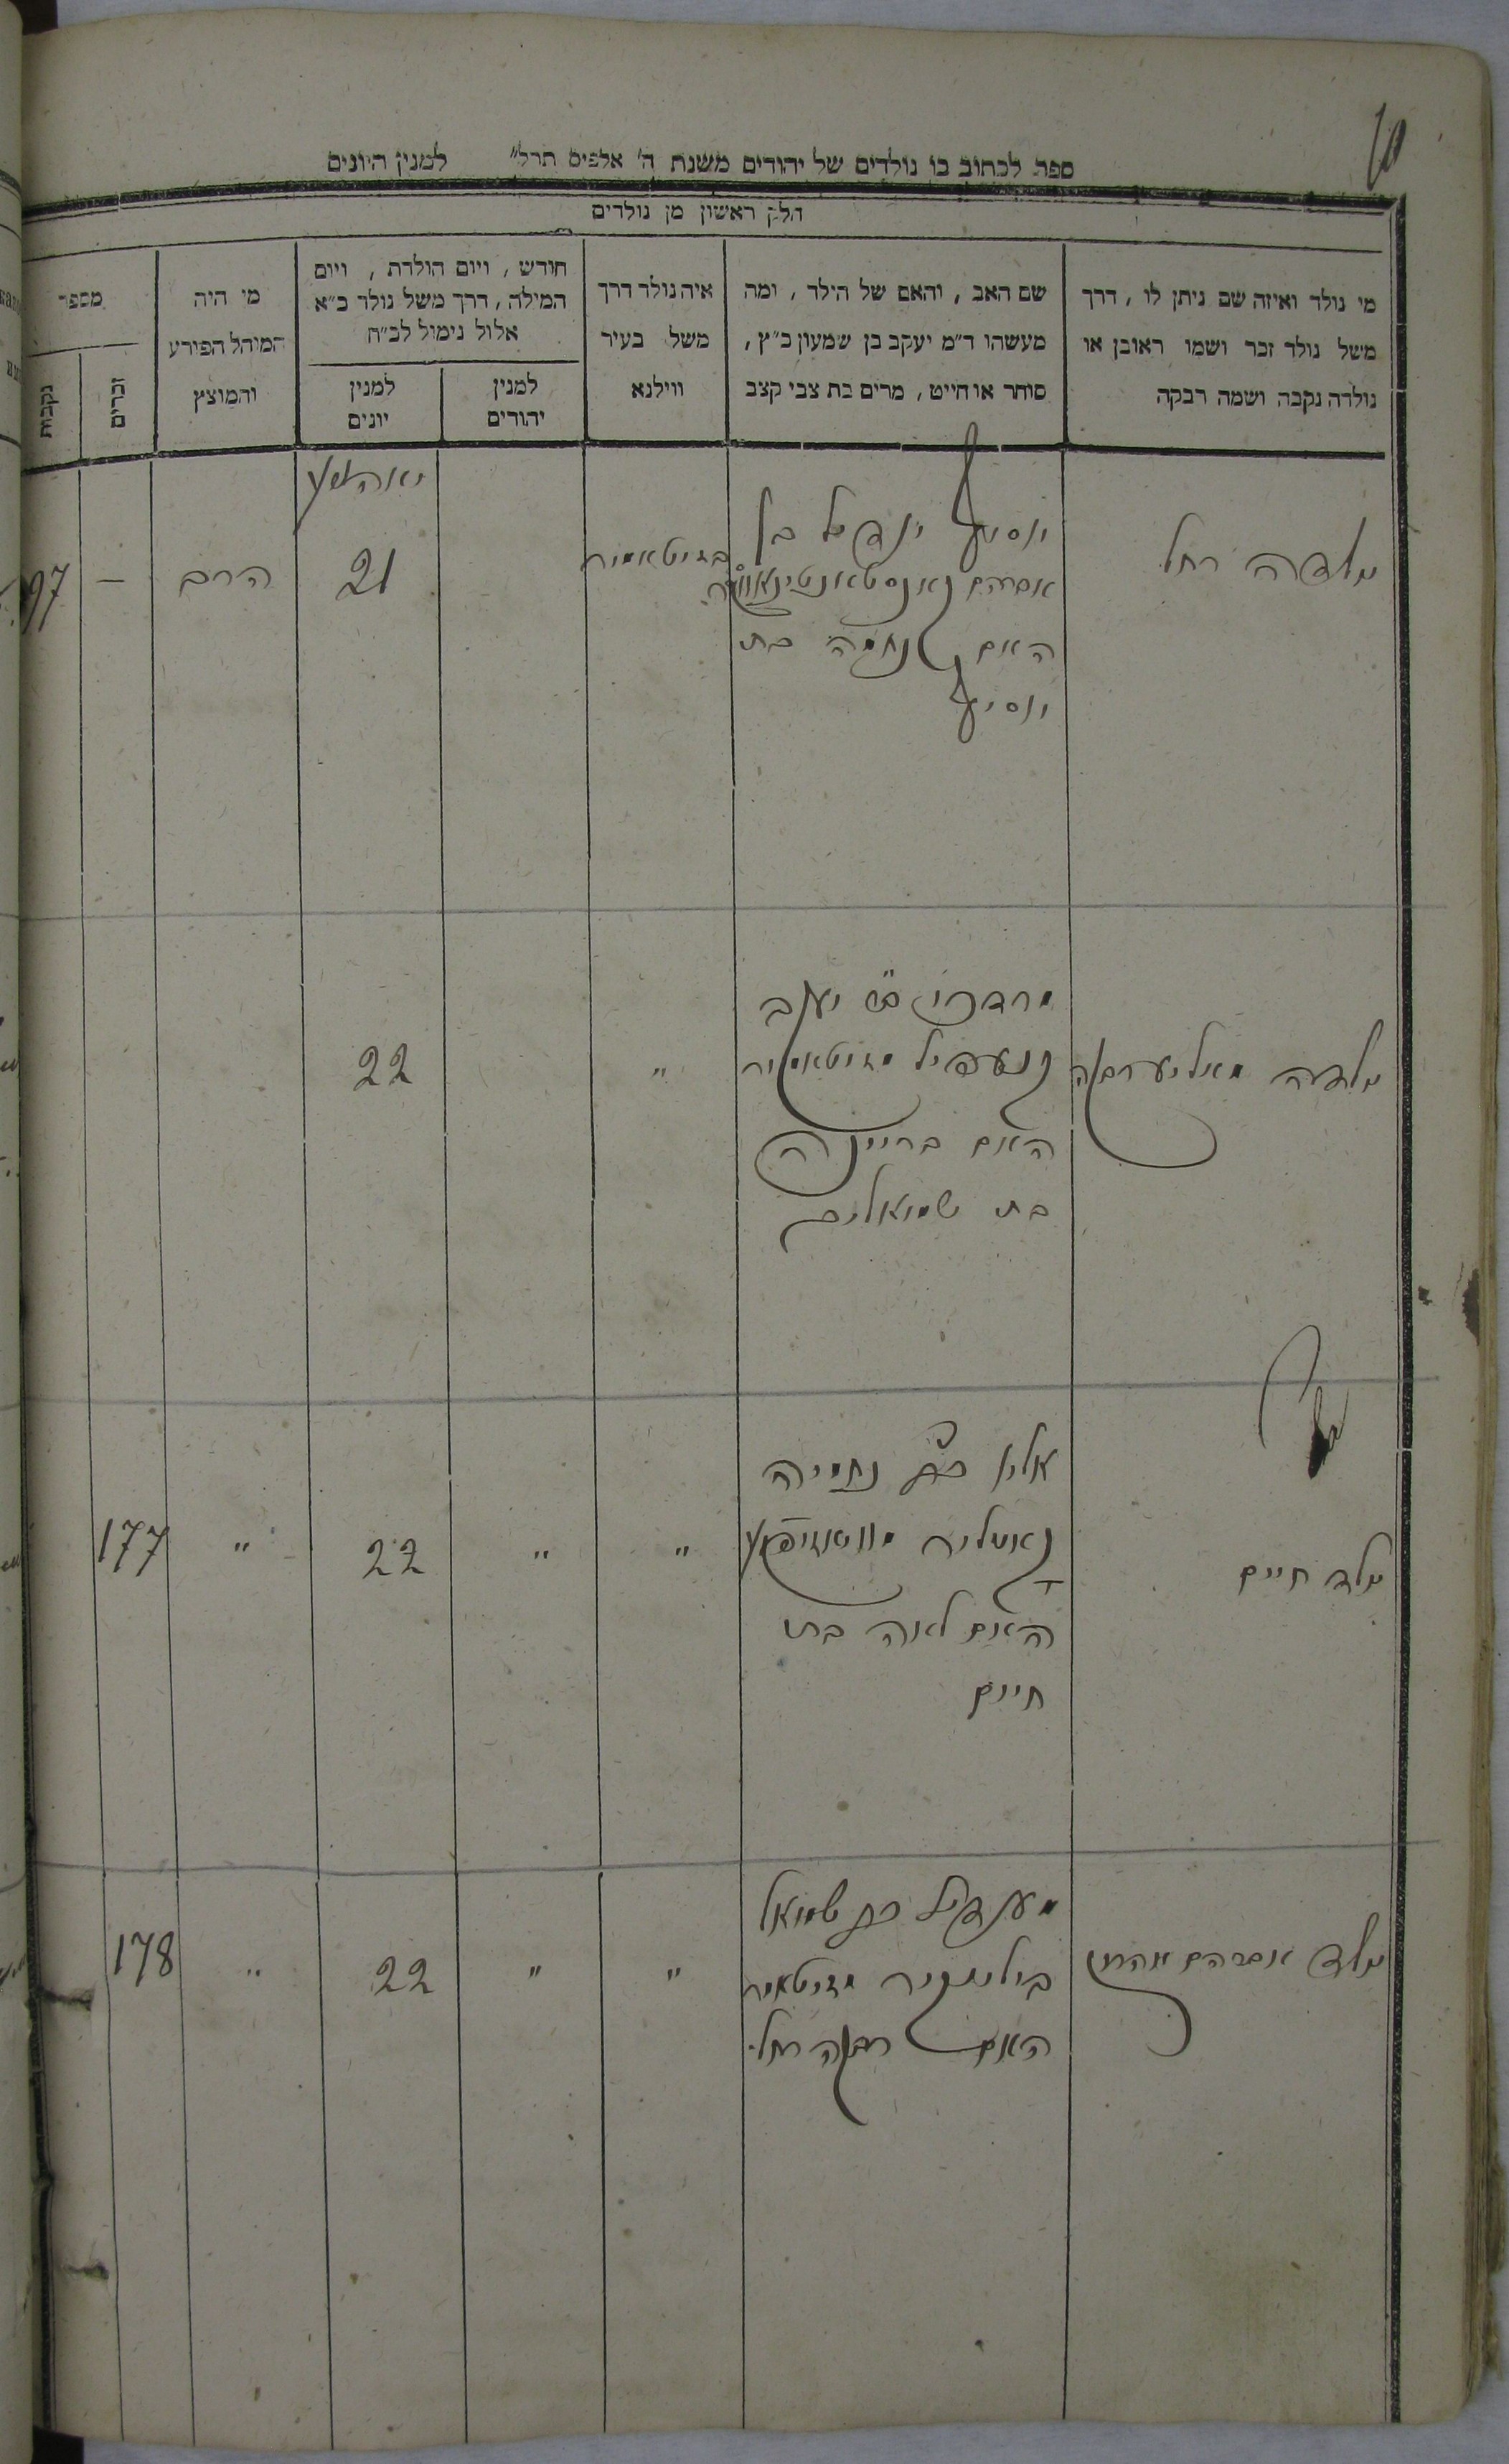 10
ספר לכתוב בו נולדים של יהודים משנת ה' אלפים תרל" למנין היונים
חלק ראשון מן נולדים
מי נולד ואיזה שם ניתן לו, דרך
משל נולד זכר ושמו ראובן או
נולדה נקבה ושמה רבקה
שם האב, והאם של הילד, ומה
מעשהו ד"מ יעקב בן שמעון כ"ץ,
סוחר או חייט, מרים בת צבי קצב
איה נולד דרך
משל בעיר
ווילנא
חודש, ויום הולדת, ויום
המילה, דרך משל נולד כ"א
אלול נימול לכ"ח
למנין
יהודים
למנין
יונים
מי היה
המוהל הפורע
והמוצץ
מספר
זכרים
נקבות
ילדה רחל
יוסיף בן
אברהם
האם נחמה בת
יוסיף
זיטאמיר
21
הרב
—
97
ילדה
מרדכי יעקב
זיטאמיר
האם בריינה
בת
"
22
ילד חיים
אליו נחמיה
האם לאה בת
חיים
"
"
22
"
177
ילד אברהם אהרן
מענדיל שמואל
זיטאמיר
האם רחל
"
"
22
"
178